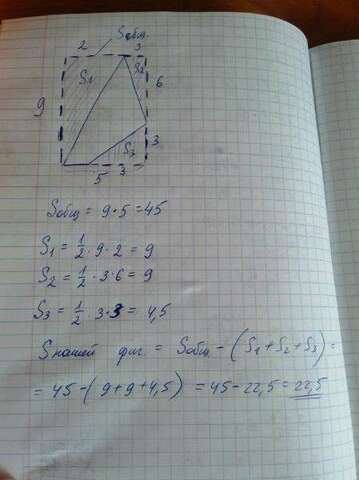 Sобщ.
2 3
S1 S2
9 6
S3 3
5 3
Sобщ = 9 • 5 = 45
S1 = 1/2 • 9 • 2 = 9
S2 = 1/2 • 3 • 6 = 9
S3 = 1/2 3 • 3 = 4,5
Sнашей фиг. = Sобщ - (S1 + S2 + S3) =
= 45 - (9 + 9 + 4,5) = 45 - 22,5 = 22,5